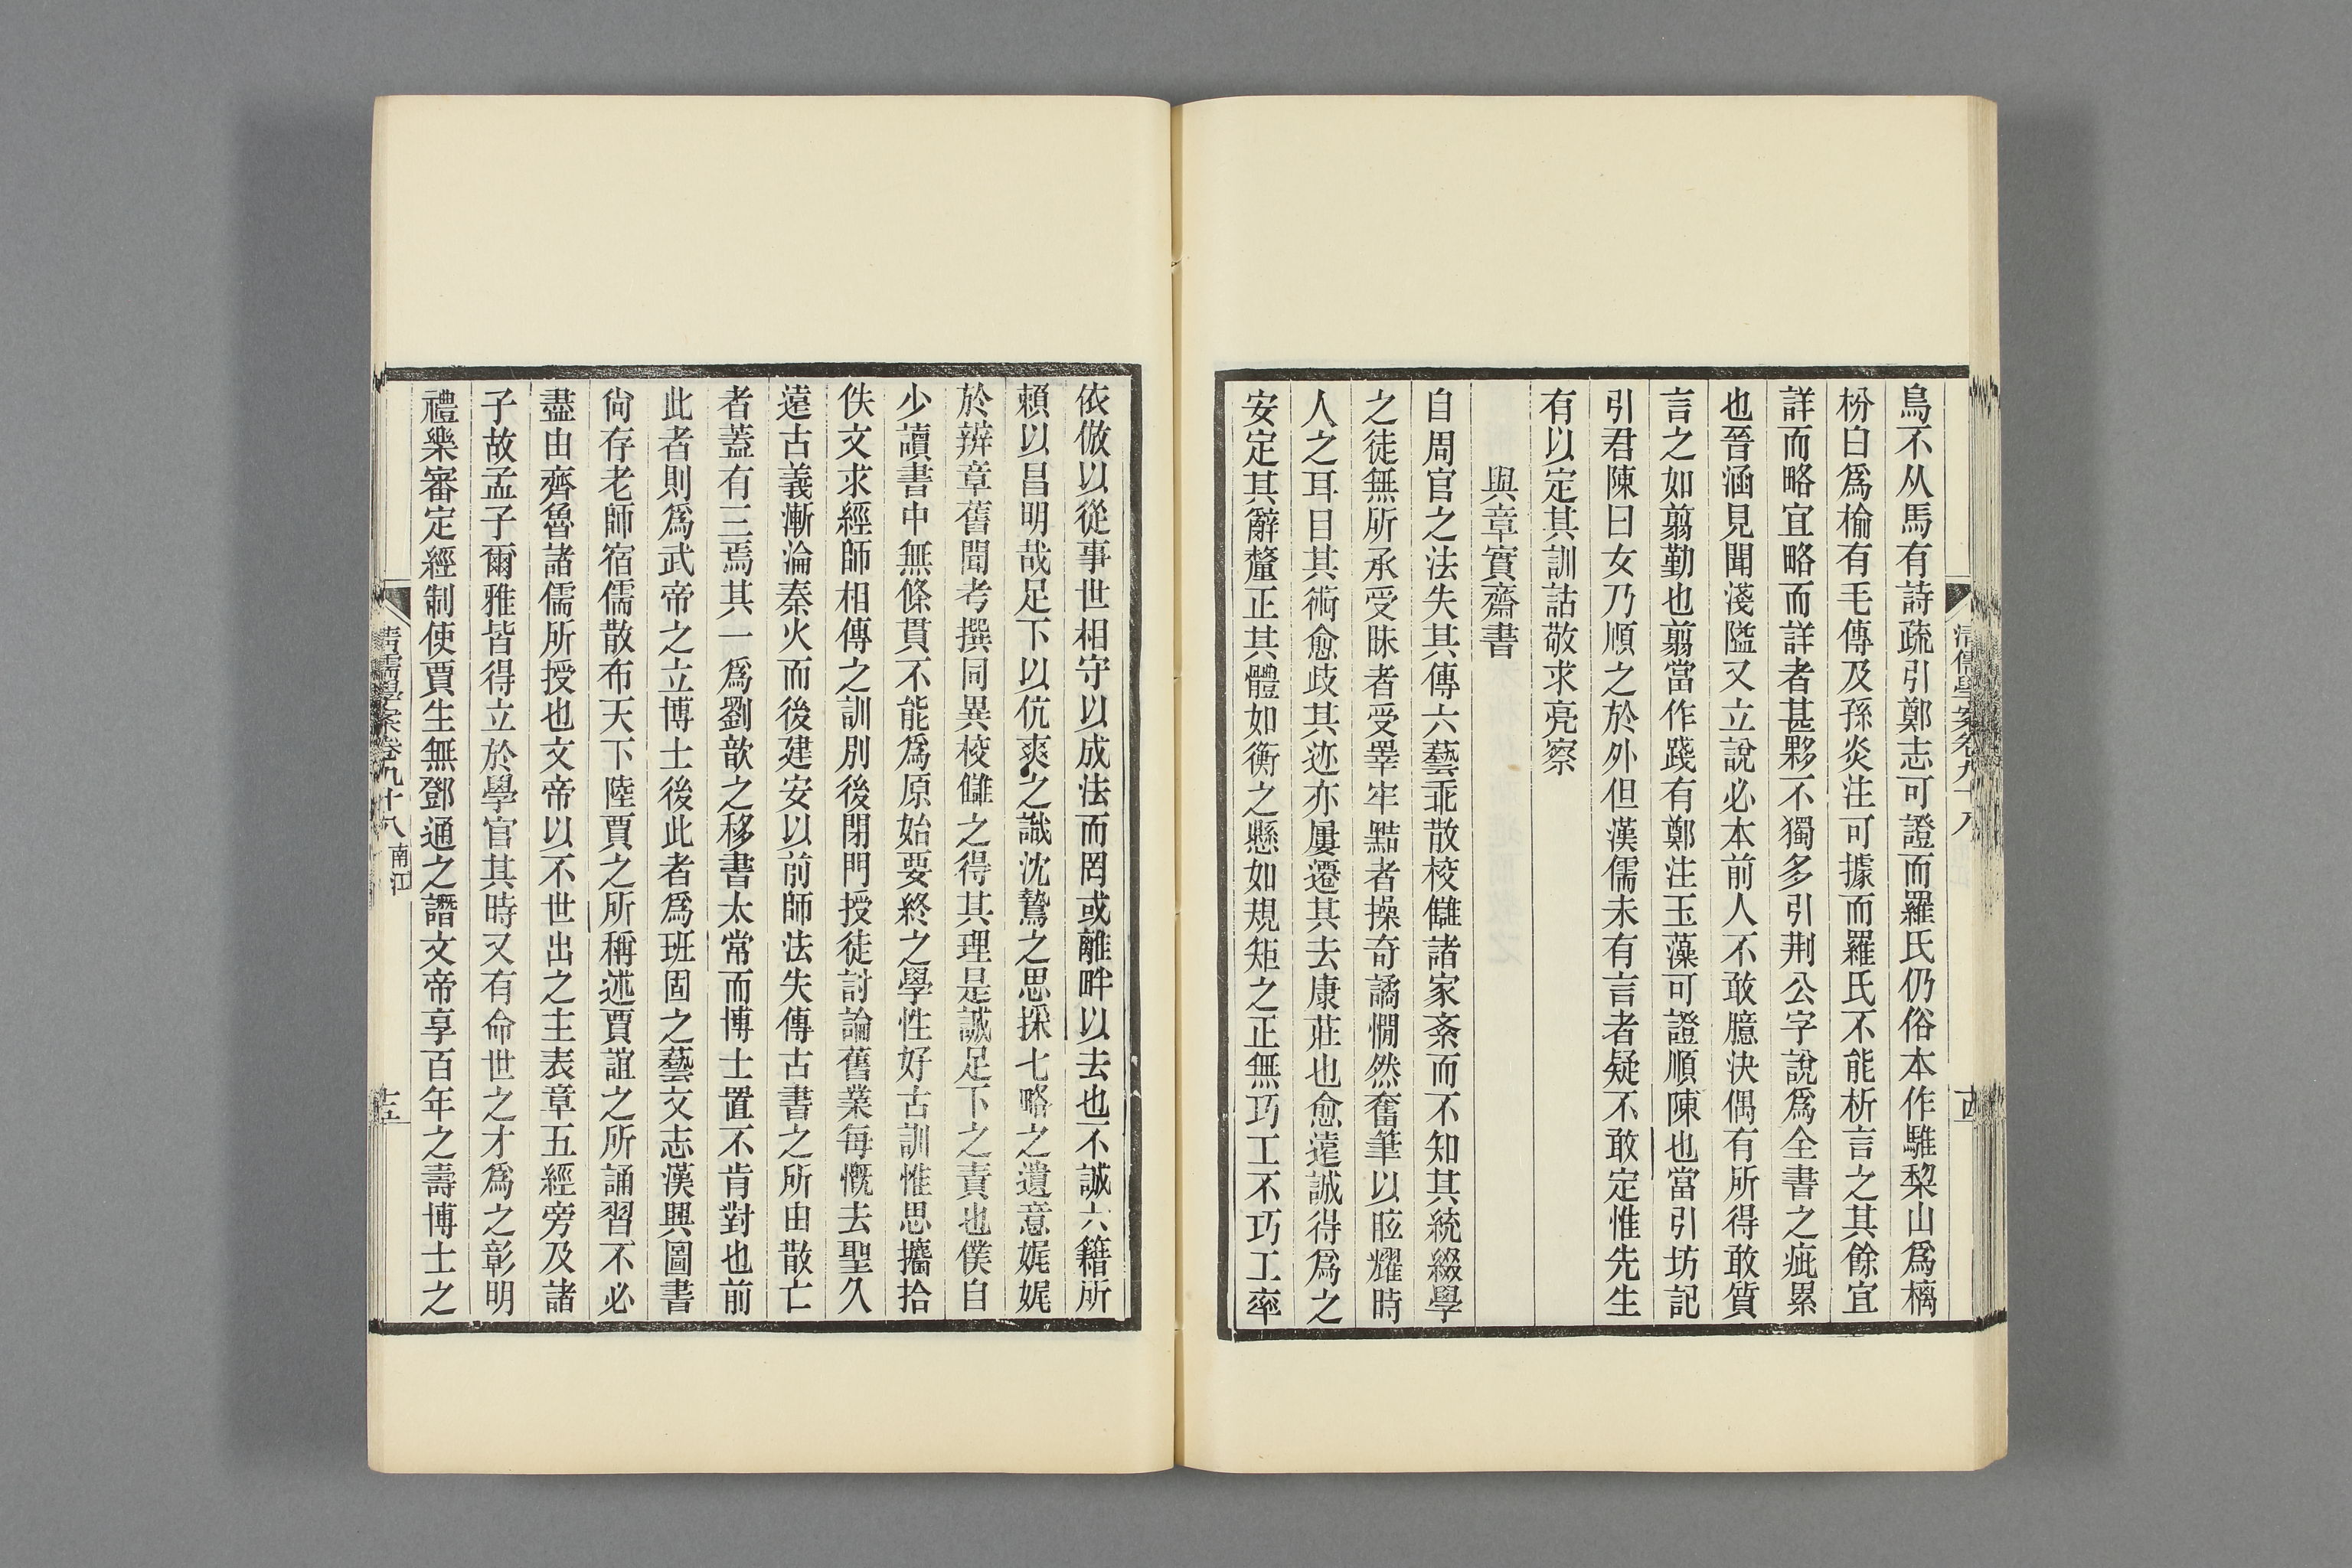 鳥不从馬有詩疏引鄭志可證而羅氏仍俗本作騅棃山爲樆
枌白爲楡有毛傳及孫炎注可據而羅氏不能析言之其餘宜
詳而略宜略而詳者甚夥不獨多引荆公字說爲全書之疵累
也晉涵見聞淺隘又立說必本前人不敢臆決偶有所得敢質
言之如翦勤也翦當作踐有鄭注玉藻可證順陳也當引坊記
引君陳曰女乃順之於外但漢儒未有言者疑不敢定惟先生
有以定其訓詁敬求亮察
與章實齋書
自周官之法失其傳六藝乖散校讎諸家紊而不知其統綴學
之徒無所承受昧者受睪牢黠者操奇譎憪然奮筆以眩耀時
人之耳目其術愈歧其迹亦屢遷其去康莊也愈遠誠得爲之
安定其辭釐正其體如衡之懸如規矩之正無巧工不巧工率
清儒學案卷九十八
古
依倣以從事世相守以成法而罔或離畔以去也不誠六籍所
賴以昌明哉足下以伉爽之識沈鷙之思採七略之遺意娓娓
於辨章舊聞考撰同異校讎之得其理是誠足下之責也僕自
少讀書中無條貫不能爲原始要終之學性好古訓惟思攟拾
佚文求經師相傳之訓別後閉門授徒討論舊業每慨去聖久
遠古義漸淪秦火而後建安以前師法失傳古書之所由散亡
者蓋有三焉其一爲劉歆之移書太常而博士置不肯對也前
此者則爲武帝之立博士後此者爲班固之藝文志漢興圖書
尙存老師宿儒散布天下陸賈之所稱述賈誼之所誦習不必
盡由齊魯諸儒所授也文帝以不世出之主表章五經旁及諸
子故孟子爾雅皆得立於學官其時又有命世之才爲之彰明
禮樂審定經制使賈生無鄧通之譖文帝享百年之壽博士之
清儒學案卷九十八 南江